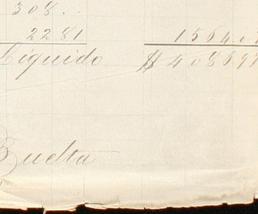 308..
2281 1564.0
Liquido $ 40899
Buelta